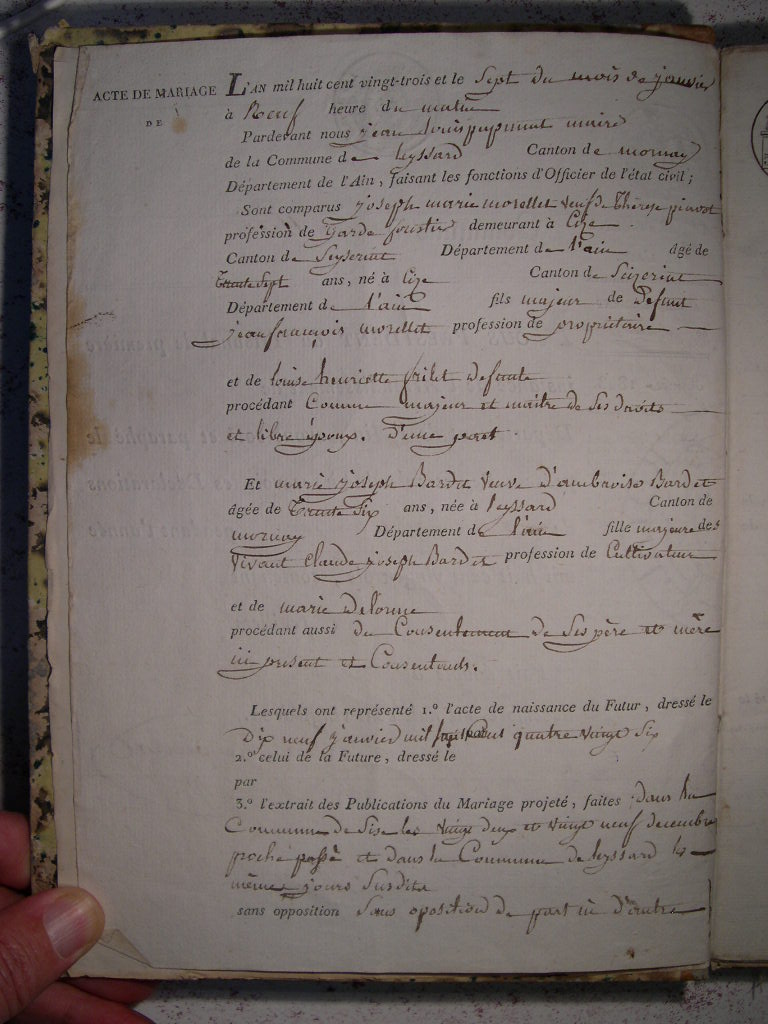 ACTE DE MARIAGE
DE
L'AN mil huit cent vingt-trois et le Sept du mois de janvier
à Neuf heure du matin
Pardevant nous jean louis maire
de la Commune de leyssard Canton de mornay
Département de l'Ain, faisant les fonctions d'Officier de l'état civil;
Sont comparus joseph marie morellet veuf de Thérèse piavot
profession de Garde forestier demeurant à Cize
Canton de Seyseriat Département de l'ain âgé de
trente Sept ans, né à Cize Canton de Seizeriat
Département de l'ain fils majeur de Defunt
jean françois morellet profession de propriétaire
et de louise henriette frilet defunte
procédant Comme majeur et maitre de Ses droits
et libre époux. D'une part
Et marie joseph Bardet veuve d'ambroise Bardet
âgée de trente Six ans, née à leyssard Canton de
mornay Département de l'ain fille majeure des
vivant Claude joseph Bardet profession de Cultivateur
et de marie Delorme
procédant aussi du Consentement de Ses père et mère
ici present et Consentants.
Lesquels ont représenté 1.º l'acte de naissance du Futur, dressé le
Dix neuf janvier mil sept cent quatre vingt Six
2.º celui de la Future, dressé le
par
3.º l'extrait des Publications du Mariage projeté, faites dans la
Commune de Sise les vingt deux et vingt neuf decembre
proche passé et dans la Commune de leyssard le
mêmes jours Susdits
sans opposition Sans oposition de part ni d'autre